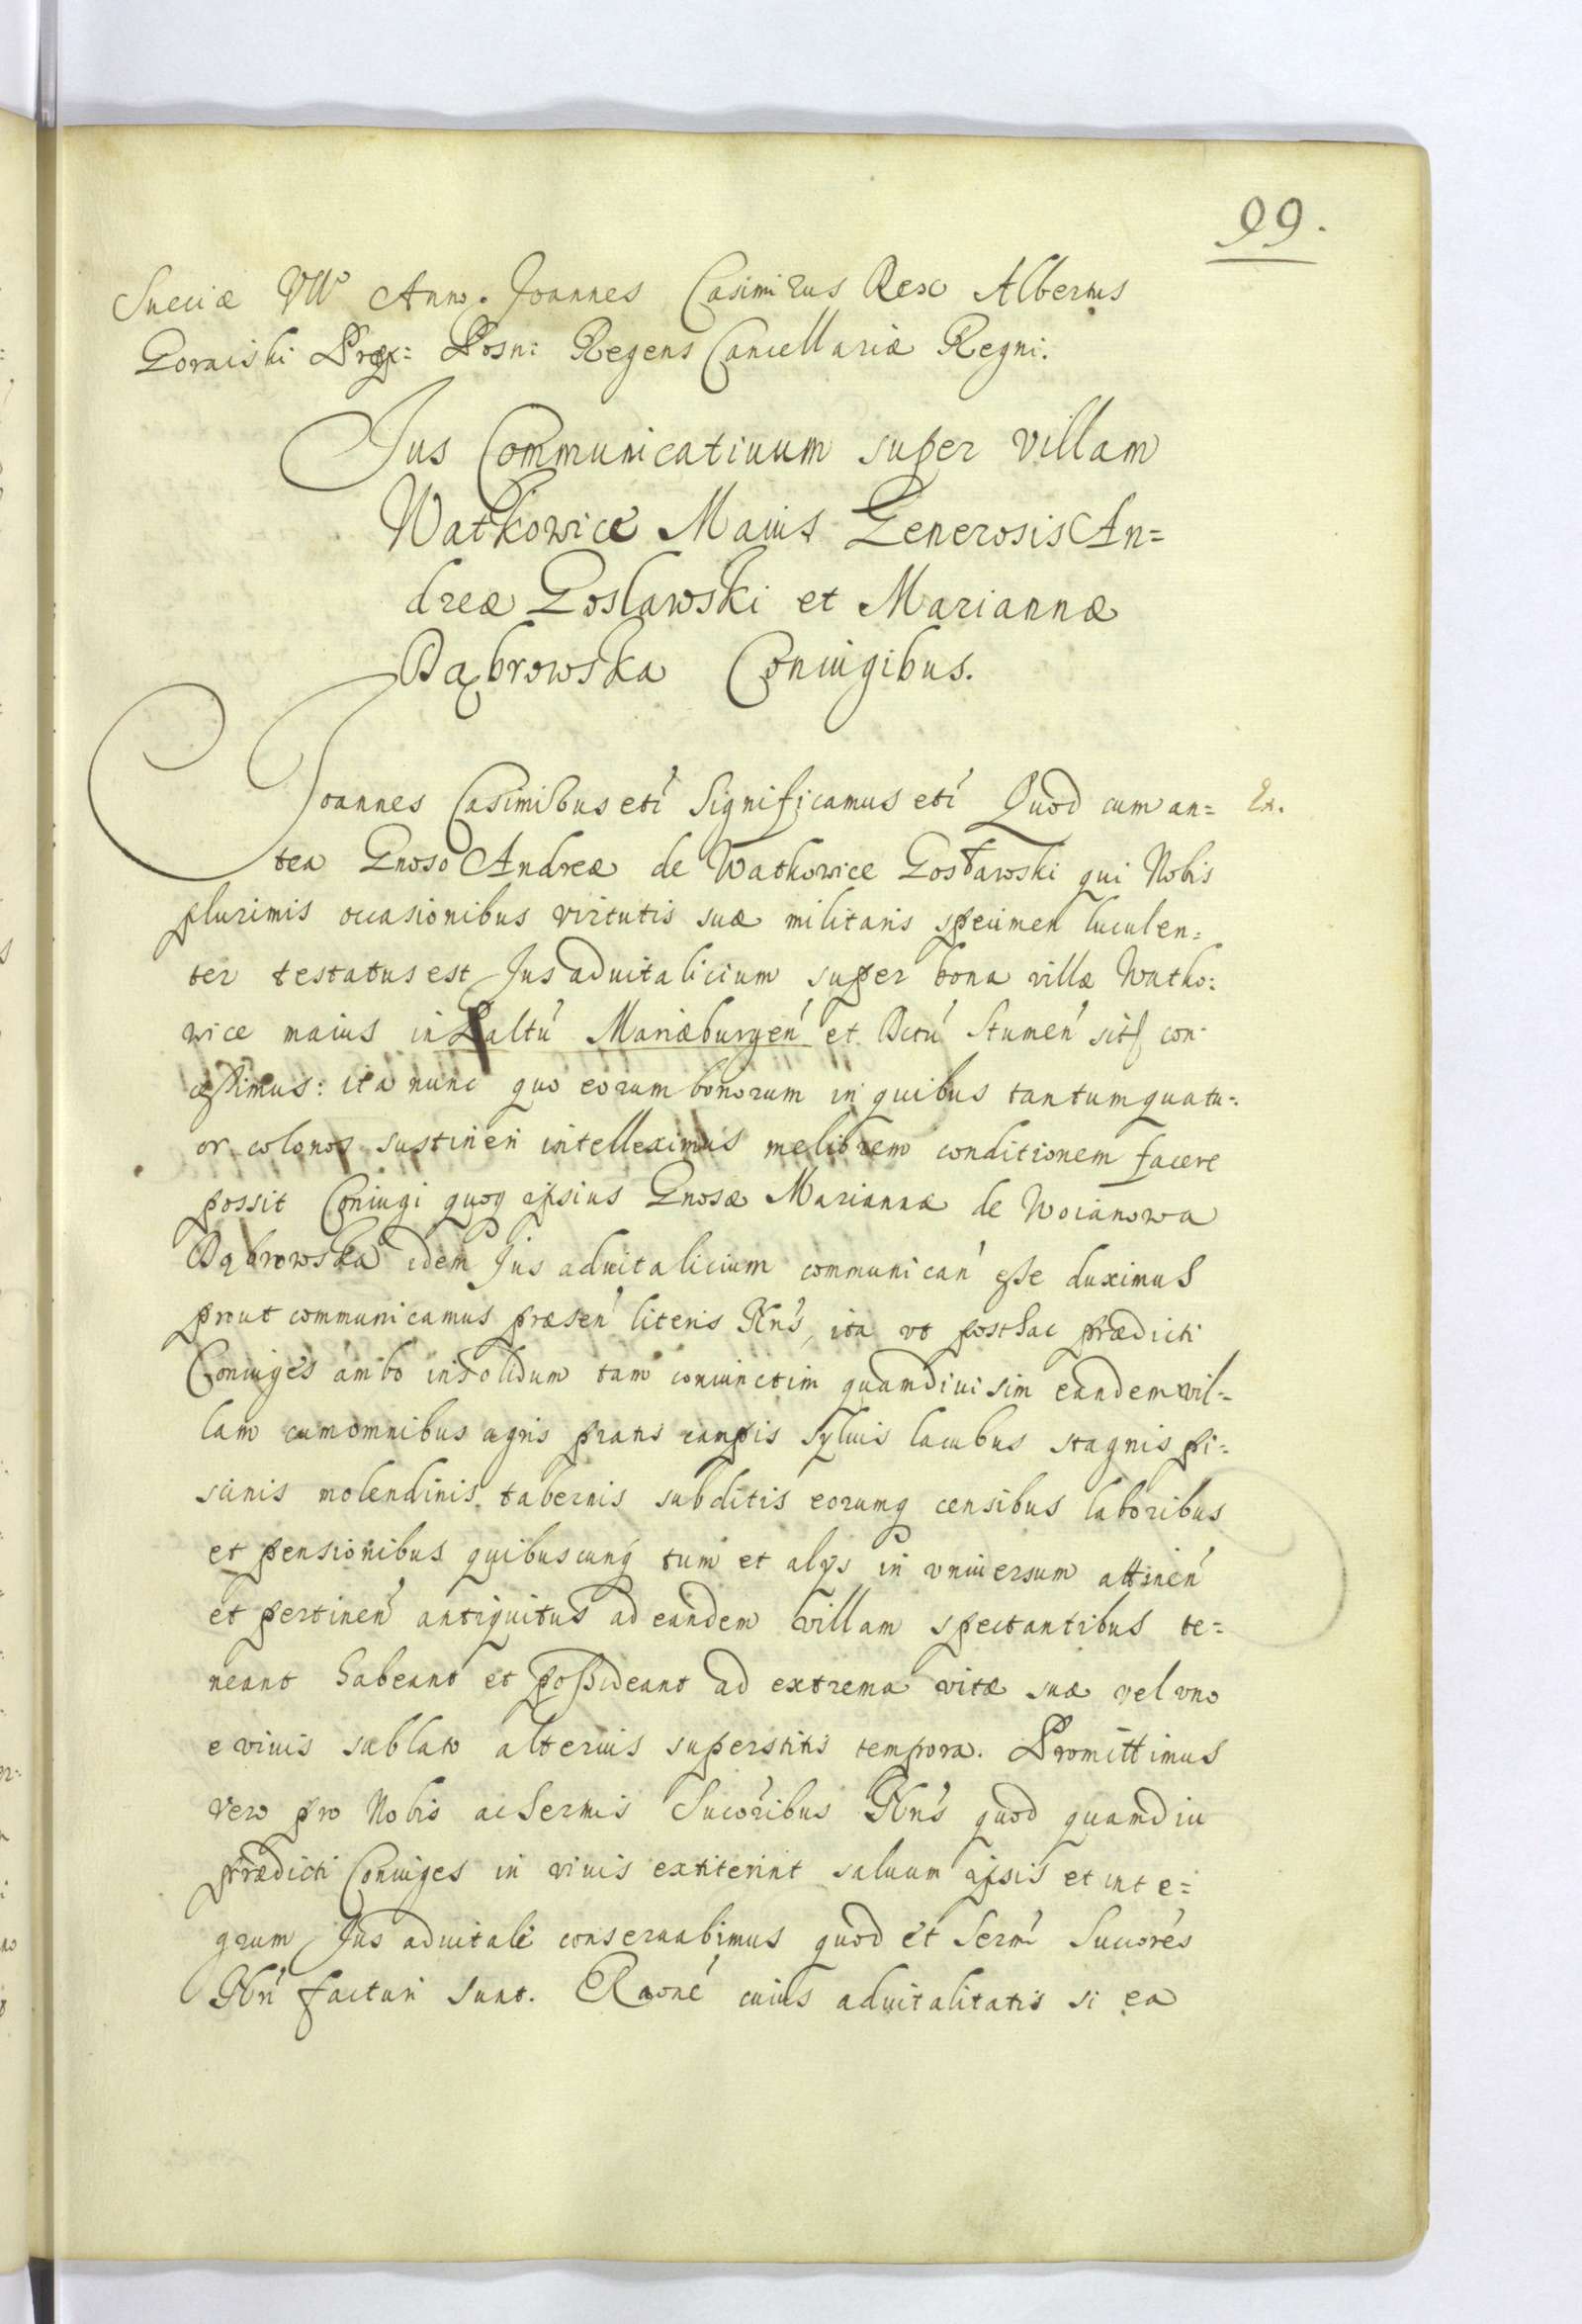 99.
Sueciæ VII° Anno. Joannes Casimirus Rex Albertus
Goraiski Præp: Posn: Regens Cancellariæ Regni.
Jus Communicatiuum super villam
Watkowice Maius Generosis An=
dreæ Goslawski et Mariannæ
Dąbrowska Coniugibus.
Joannes Casimirus etć Significamus etć Quod cum an= Ex.
tea Gnoso Andreæ de Watkowice Gosławski qui Nobis
plurimis occasionibus virtutis suæ militaris specimen luculen=
ter testatus est Jus aduitalicium super bona villæ Watko=
wice maius in Paltú Mariæburgeń et Dctú Stumeń sits con
cessimus: ita nunc quo eorum bonorum in quibus tantum quatu=
or colonos sustineri intelleximus meliorem conditionem facere
possit Coniugi quoq ipsius Gnosæ Mariannæ de Woianowa
Dąbrowska idem Jus aduitalicium communicań esse duximus
prout communicamus præseń literis Nrís, ita vt posthac prædicti
Coniuges ambo insolidum tam coniunctim quam diuisim eandem vil=
lam cum omnibus agris pratis campis syluis lacubus stagnis pi=
scinis molendinis tabernis subditis eorumq censibus laboribus
et pensionibus quibuscunq tum et alys in vniuersum attineń
et pertineń antiquitus ad eandem villam spectantibus te=
neant habeant et possideant ad extrema vitæ suæ vel vno
e viuis sublato alterius superstitis tempora. Promittimus
vero pro Nobis ac Sermis Sucóribus Nrís quod quamdiu
prædicti Coniuges in viuis extiterint saluum ipsis et inte=
grum Jus aduitale conseruabimus quod et Sermí Succorés
Nrí facturi sunt. Raoné cuius aduitalitatis si ea